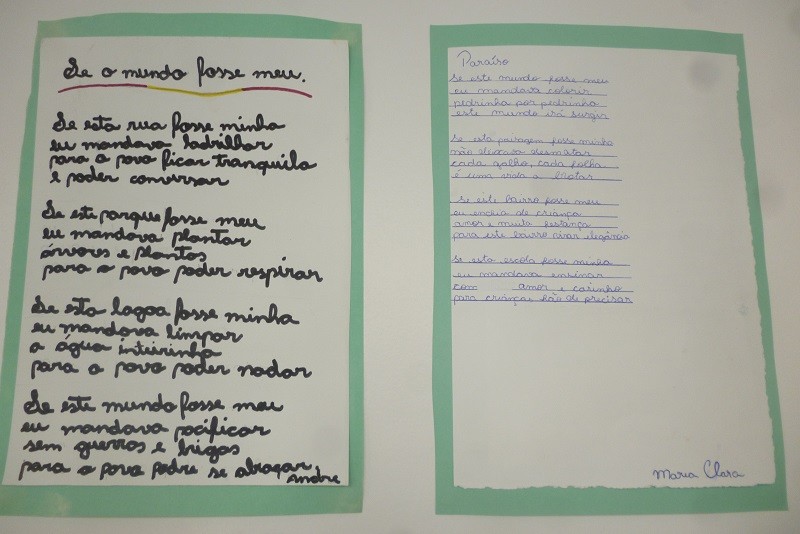 Se o mundo fosse meu.
Se esta rua fosse minha
eu mandava ladrilhar
para o povo ficar tranquilo
e poder conversar
Se este parque fosse meu
eu mandava plantar
árvores e plantas
para o povo poder respirar
Se esta lagoa fosse minha
eu mandava limpar
a água inteirinha
para o povo poder nadar
Se este mundo fosse meu
eu mandava pacificar
sem guerras e brigas
para o povo podre se abraçar
Andre
Paraíso
Se este mundo fosse meu
eu mandava colorir
pedrinha por pedrinha
este mundo irá surgir
Se esta paisagem fosse minha
não deixava desmatar
cada galho, cada folha
é uma vida a brotar
Se este bairro fosse meu
eu enchia de criança
amor e muita festança
para este bairro virar elegância
Se esta escola fosse minha
eu mandava ensinar
com amor e carinho
para criança hão de precisar
Maria Clara